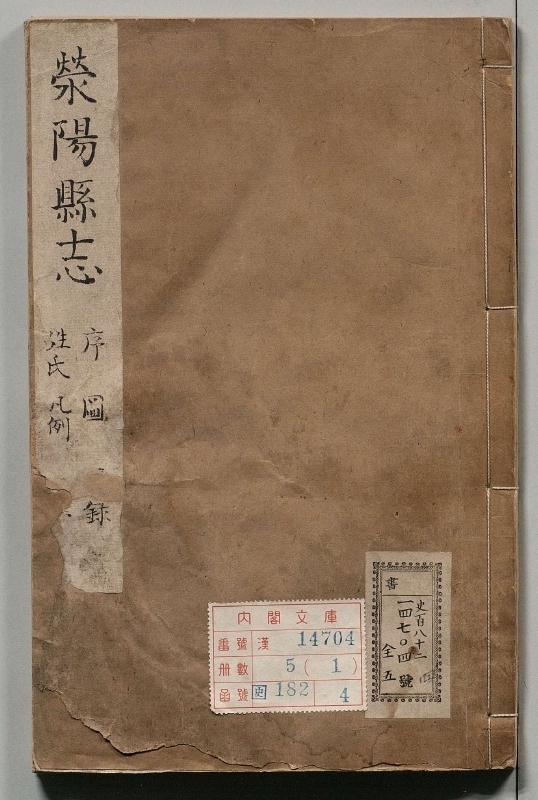 滎陽縣志
序 圖 録
姓氏 凡例
內閣文庫
番號 漢 14704
册數 5(1)
函號 史 182 4
書
史百八十二
一四七〇四號
全五